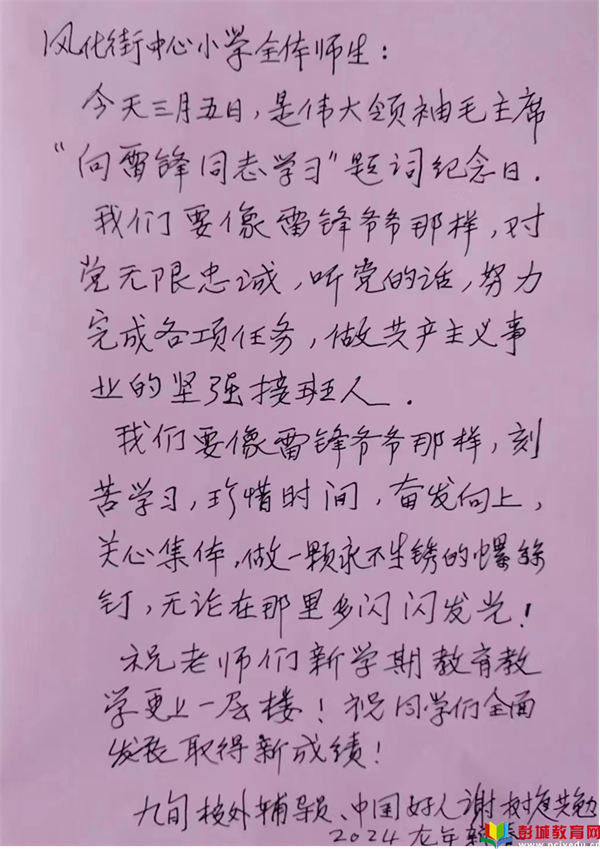 风化街中心小学全体师生：
今天三月五日，是伟大领袖毛主席
“向雷锋同志学习”题词纪念日．
我们要像雷锋爷爷那样，对
党无限忠诚，听党的话，努力
完成各项任务，做共产主义事
业的坚强接班人．
我们要像雷锋爷爷那样，刻
苦学习，珍惜时间，奋发向上，
关心集体，做一颗永不生锈的螺丝
钉，无论在那里多闪闪发光！
祝老师们新学期教育教
学更上一层楼！祝同学们全面
发展取得新成绩！
九旬校外辅导员、中国好人谢树 共勉
2024龙年
彭城教育网
www.pcjyedu.cn